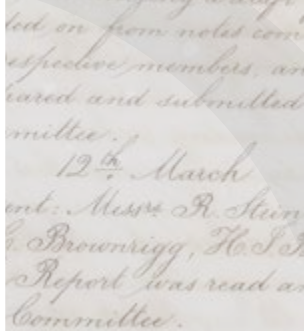 ded on from notes com
espective members, an
pared and submitted
mittee.
12th March
ent: Messrs R. Stein
Brownrigg, H. S. R
Report was read an
Committee.